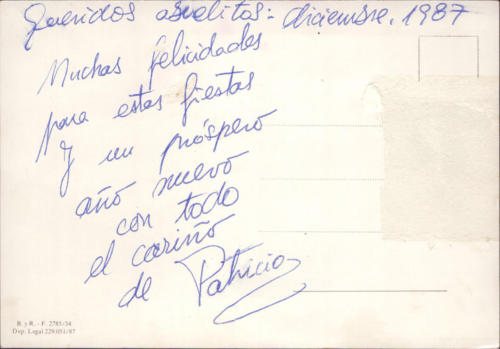 Queridos abuelitos: diciembre, 1987
Muchas felicidades
para estas fiestas
y un próspero
año nuevo
con todo
el cariño
de Patricia
B. y R. - F. 2785/34
Dep. Legal 229.051/87